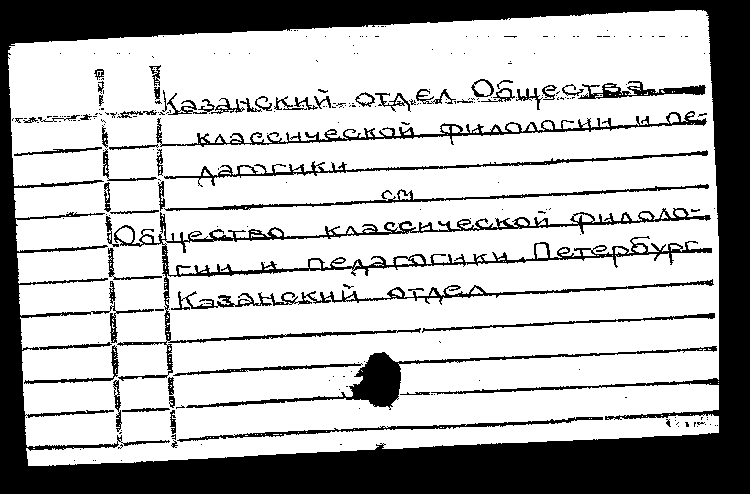 Казанский отдел Общества
классической филологии и пе-
дагогики
см
Общество классической филоло-
гии и педагогики. Петербург.
Казанский отдел.